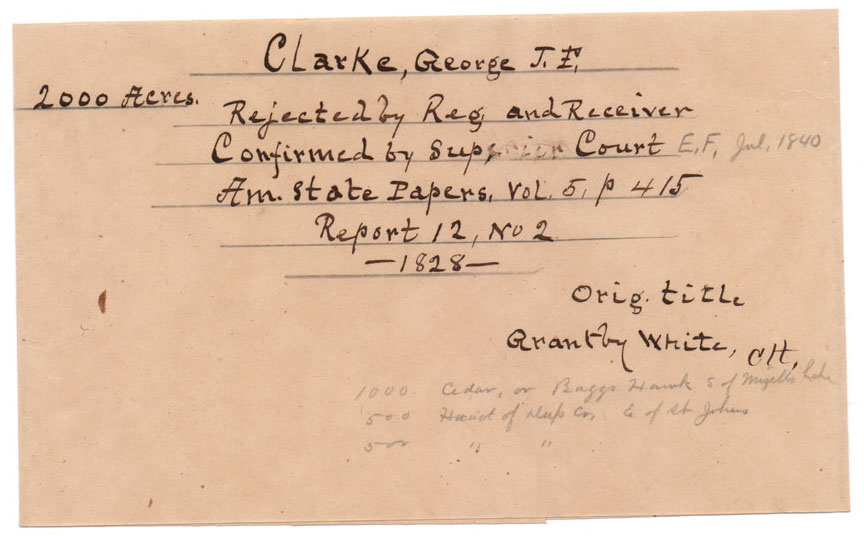 Clarke, George J. F.
2000 Acres.
Rejected by Reg. and Receiver
Confirmed by Superior Court E.F, Jul, 1840
Am. State Papers, Vol. 5, p 415
Report 12, No 2
—1828—
Orig. title
Grant by White,
1000 Cedar, or Baggs Hawk S of Mizells Lake
500 Head of Co, E of St Johns
500 " "